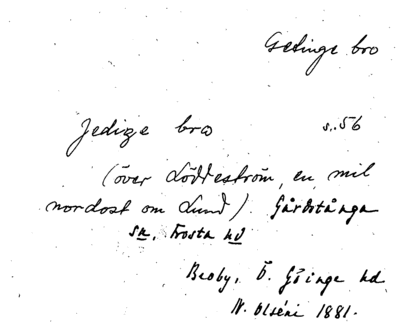 Getinge bro
Jedinge bro s. 56
(över Löddeström, en mil
nordost om Lund) Gårdstånga
sn, Frosta hd
Broby, Ö. Göinge hd
N. Olséni 1881.